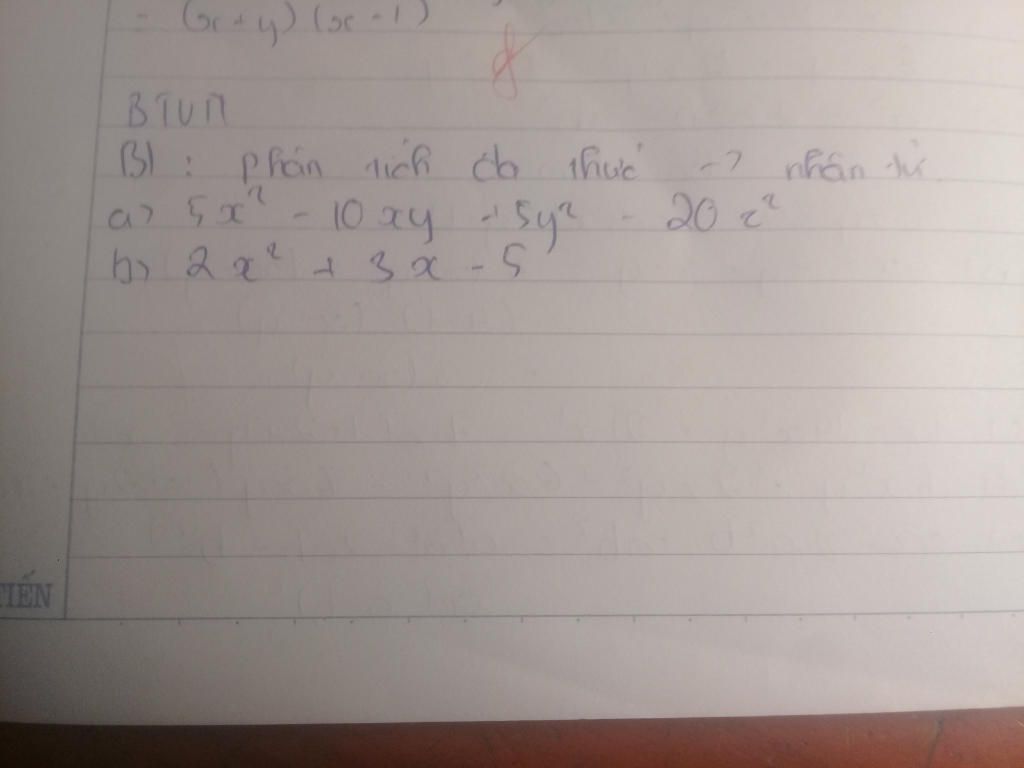 = (x + y) (x - 1)
BTVN
B1 : phân tích đa thức -> nhân tử
a> 5x² - 10xy + 5y² - 20z²
b> 2x² + 3x - 5
TIẾN